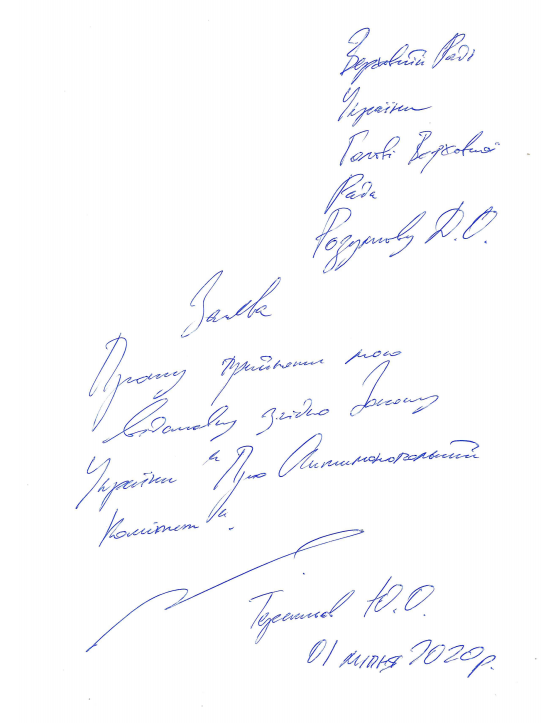 Верховній Раді
України
Голові Верховної
Ради
Разумкову Д.О.
Заява
Прошу прийняти мою
відставку згідно Закону
України "Про Антимонопольний
Комітет".
Терентьєв Ю.О.
01 липня 2020р.